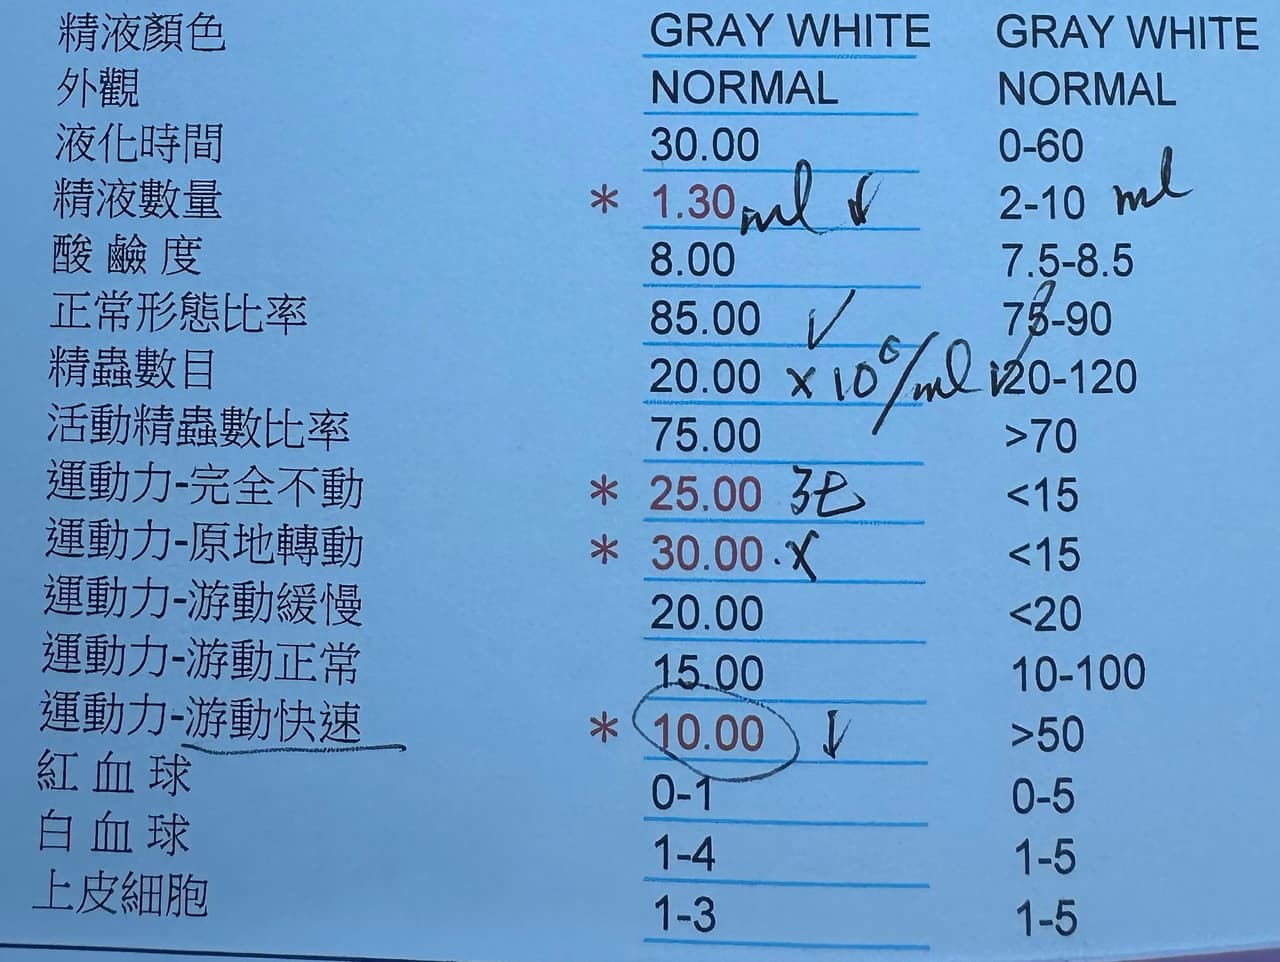 精液顏色 GRAY WHITE GRAY WHITE
外觀 NORMAL NORMAL
液化時間 30.00 0-60
精液數量 * 1.30 ml ↓ 2-10 ml
酸鹼度 8.00 7.5-8.5
正常形態比率 85.00 ✓ 75-90
精蟲數目 20.00 × 10⁶/ml ✓ 20-120
活動精蟲數比率 75.00 >70
運動力-完全不動 * 25.00 <15
運動力-原地轉動 * 30.00 . X <15
運動力-游動緩慢 20.00 <20
運動力-游動正常 15.00 10-100
運動力-游動快速 * 10.00 ↓ >50
紅血球 0-1 0-5
白血球 1-4 1-5
上皮細胞 1-3 1-5